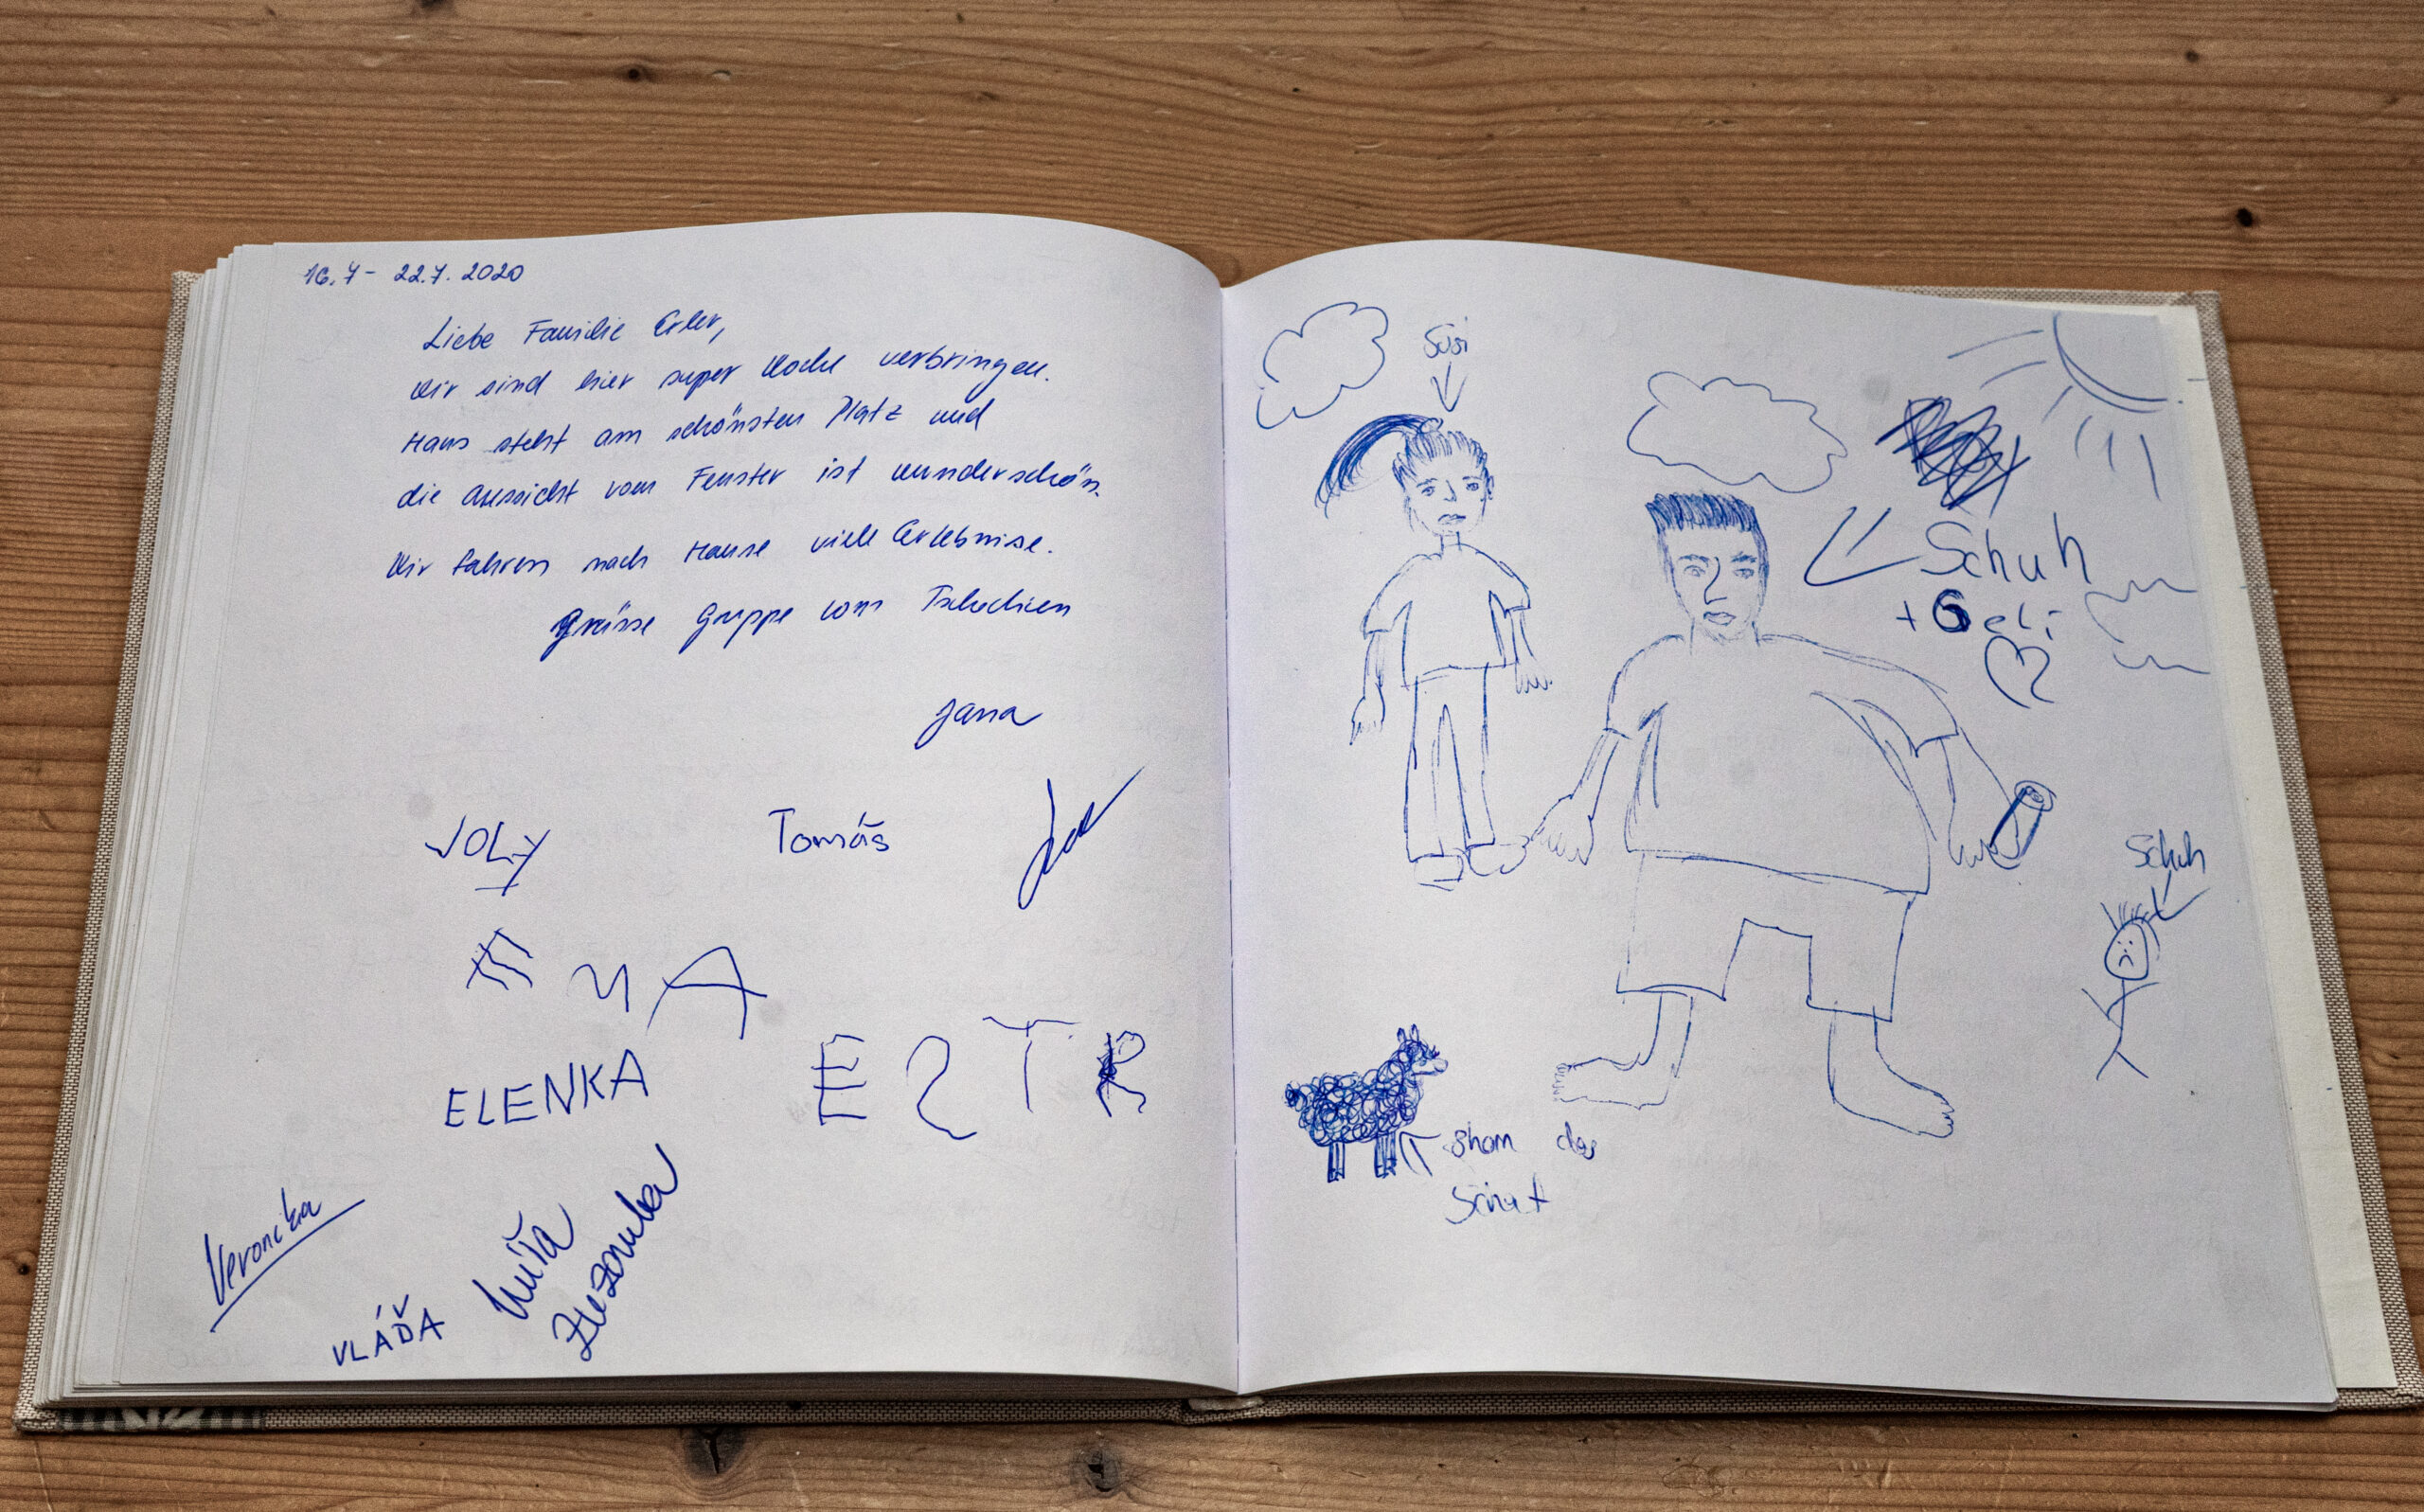 16.7- 22.7. 2020
Liebe Familie Erler,
Wir sind hier super Woche verbringen.
Haus steht am schönsten Platz und
die Aussicht vom Fenster ist wunderschön.
Wir fahren nach Hause viele Erlebnise.
Grüsse Gruppe vom Tschechien
Jana
JOLY
Tomáš
ELENKA
ESTR
Veronika
VLÁĎA
Míťa
Zuzanka
Susi
Schuh
+ Geli
Schuh
das